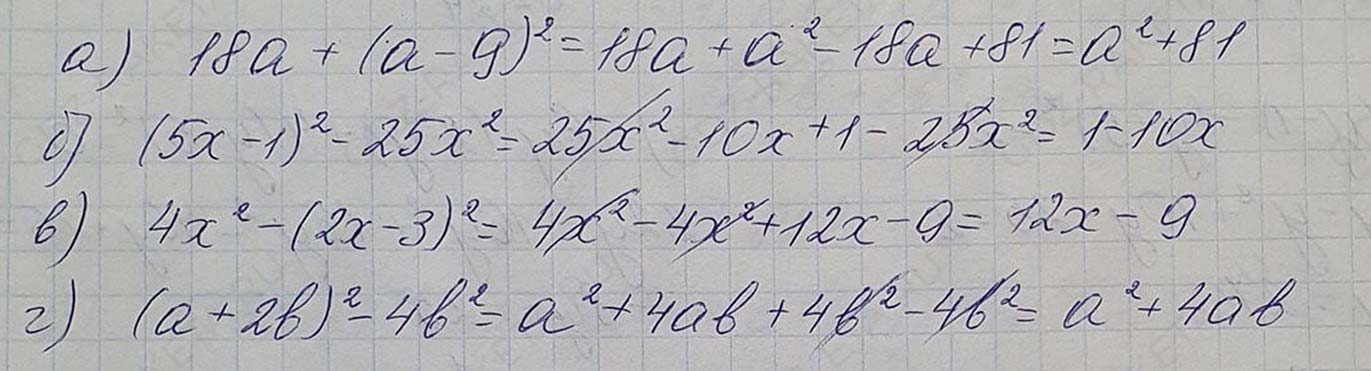 а) 18a + (a - 9)² = 18a + a² - 18a + 81 = a² + 81
б) (5x - 1)² - 25x² = 25x² - 10x + 1 - 25x² = 1 - 10x
в) 4x² - (2x - 3)² = 4x² - 4x² + 12x - 9 = 12x - 9
г) (a + 2b)² - 4b² = a² + 4ab + 4b² - 4b² = a² + 4ab